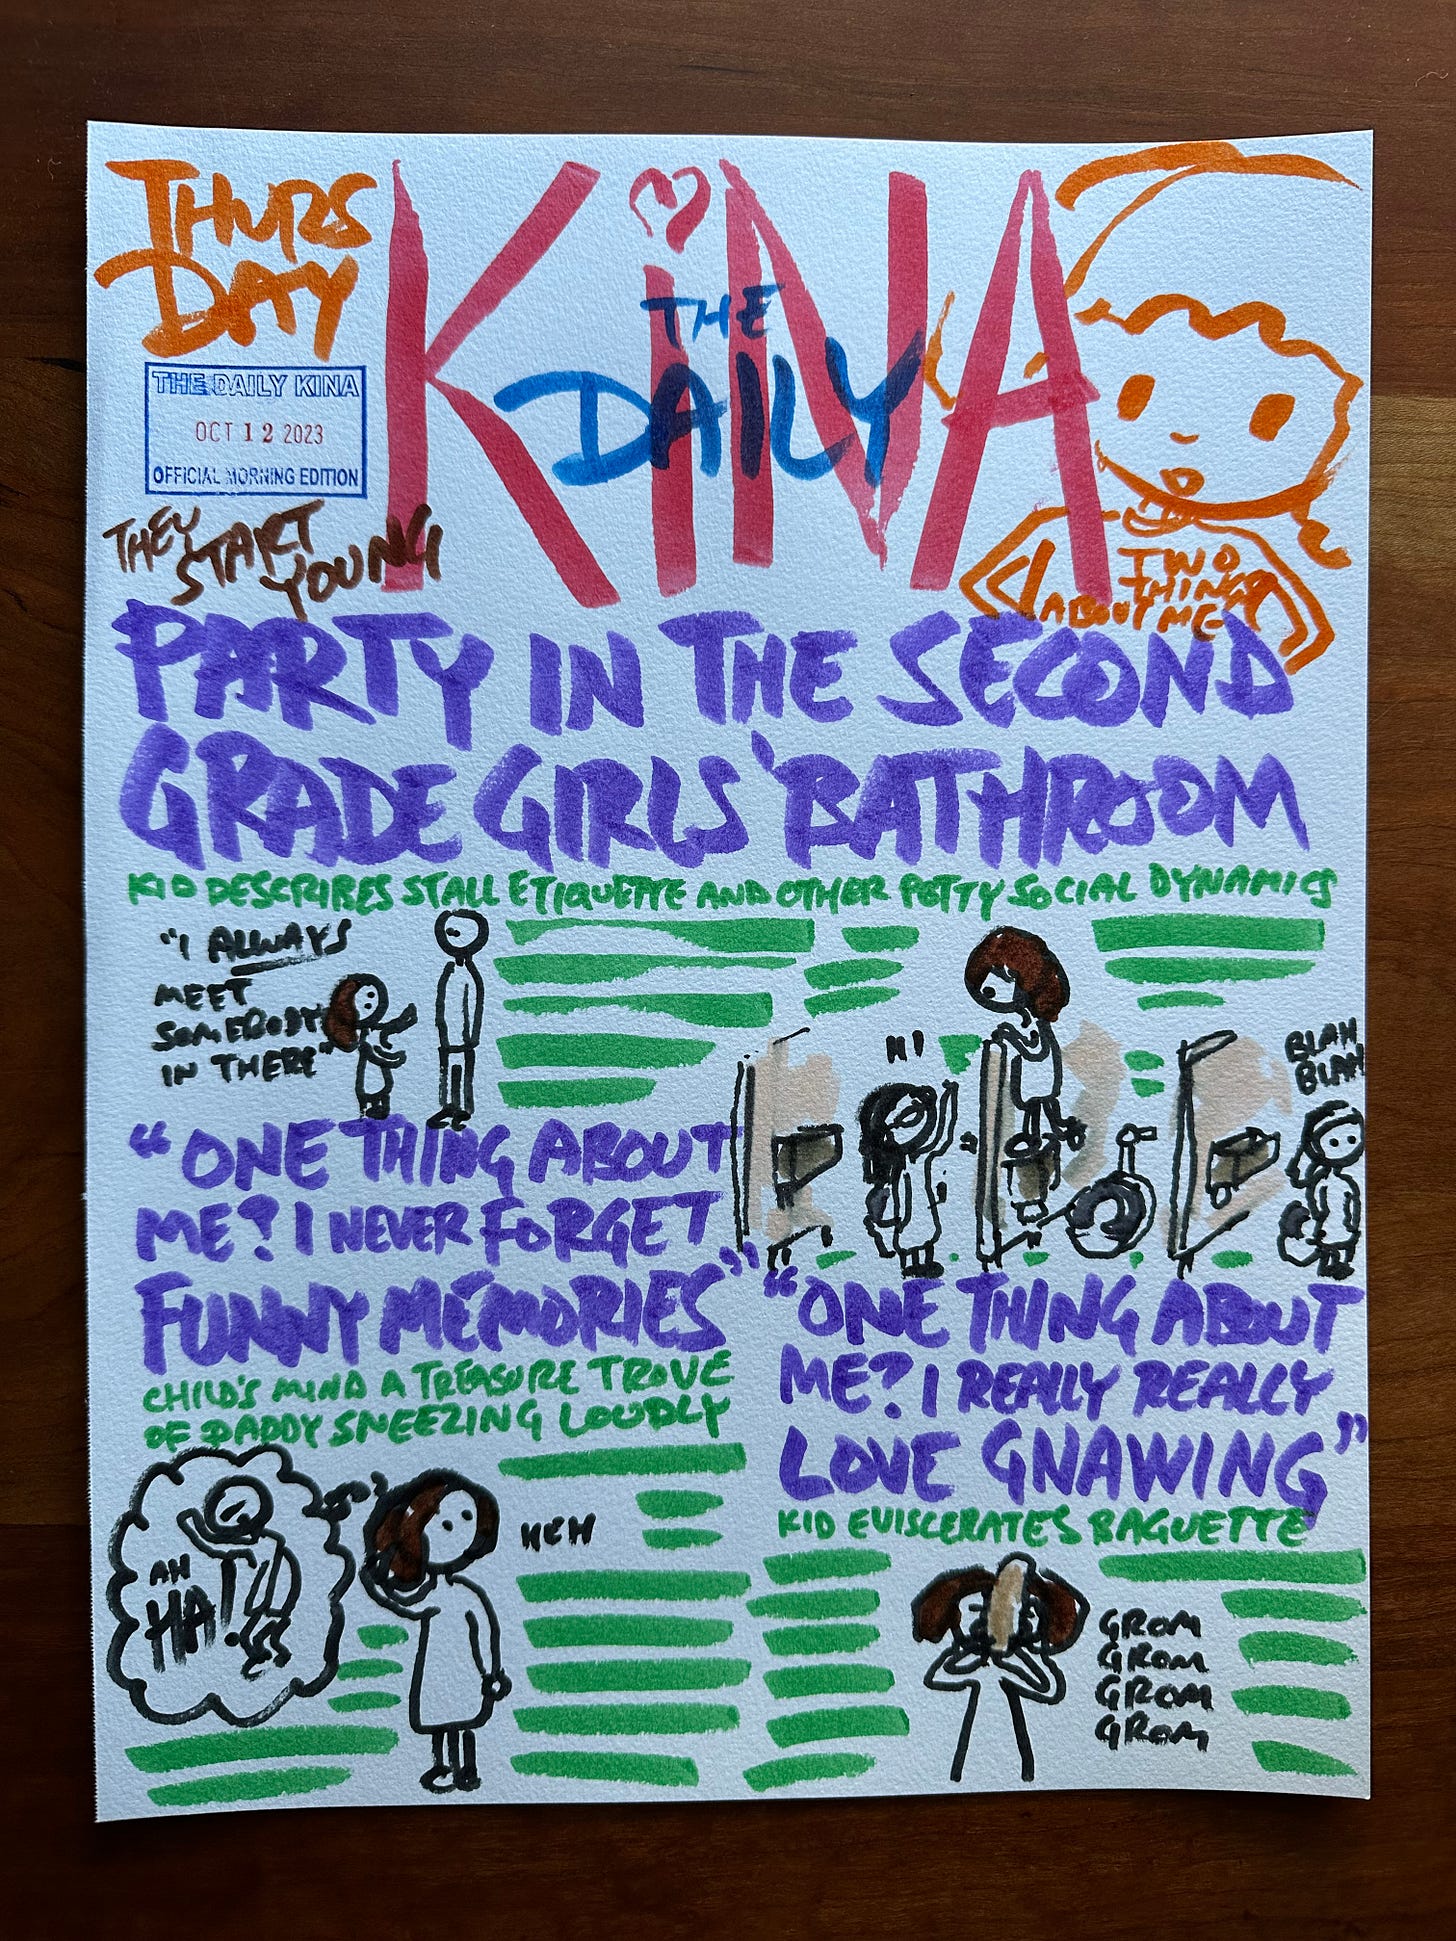 THURS
DAY
KiNA
THE
DAILY
THE DAILY KINA
OCT 12 2023
OFFICIAL MORNING EDITION
THEY
START
YOUNG
TWO
THINGS
ABOUT ME
PARTY IN THE SECOND
GRADE GIRLS' BATHROOM
KID DESCRIBES STALL ETIQUETTE AND OTHER POTTY SOCIAL DYNAMICS
"I ALWAYS
MEET
SOMEBODY
IN THERE"
HI
BLAH
BLAH
"ONE THING ABOUT
ME? I NEVER FORGET
FUNNY MEMORIES"
CHILD'S MIND A TREASURE TROVE
OF DADDY SNEEZING LOUDLY
AH
HA!
HEH
"ONE THING ABOUT
ME? I REALLY REALLY
LOVE GNAWING"
KID EVISCERATES BAGUETTE
GROM
GROM
GROM
GROM